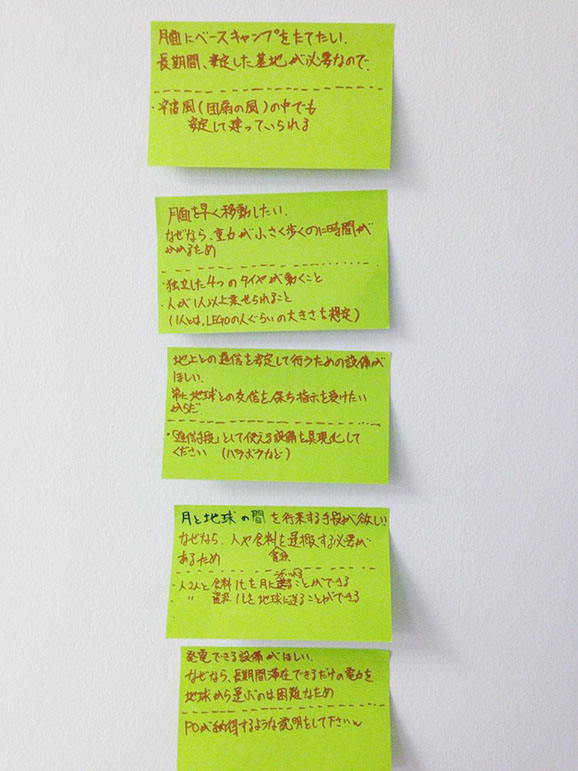 月面にベースキャンプをたてたい.
長期間、安定した基地が必要なので.
・宇宙風(団扇の風)の中でも
安定して建っていられる
月面を早く移動したい.
なぜなら、重力が小さく歩くのに時間が
かかるため
・独立した4つのタイヤが動くこと
・人が1人以上乗せられること
(1人とは、LEGOの人ぐらいの大きさを想定)
地上との通信を安定して行うための設備が
ほしい.
常に地球との交信を保ち指示を受けたい
からだ.
・「通信手段」として使える設備を具現化して
ください (パラボラなど)
月と地球の間を行来する手段が欲しい!
なぜなら、人や食料を運搬する必要が
あるため 資源
・人2人と食料1tを月に送ることができる
〃 資源1tを地球に送ることができる
発電できる設備がほしい.
なぜなら、長期間滞在できるだけの電力を
地球から運ぶのは困難なため
POが納得するような説明をして下さい